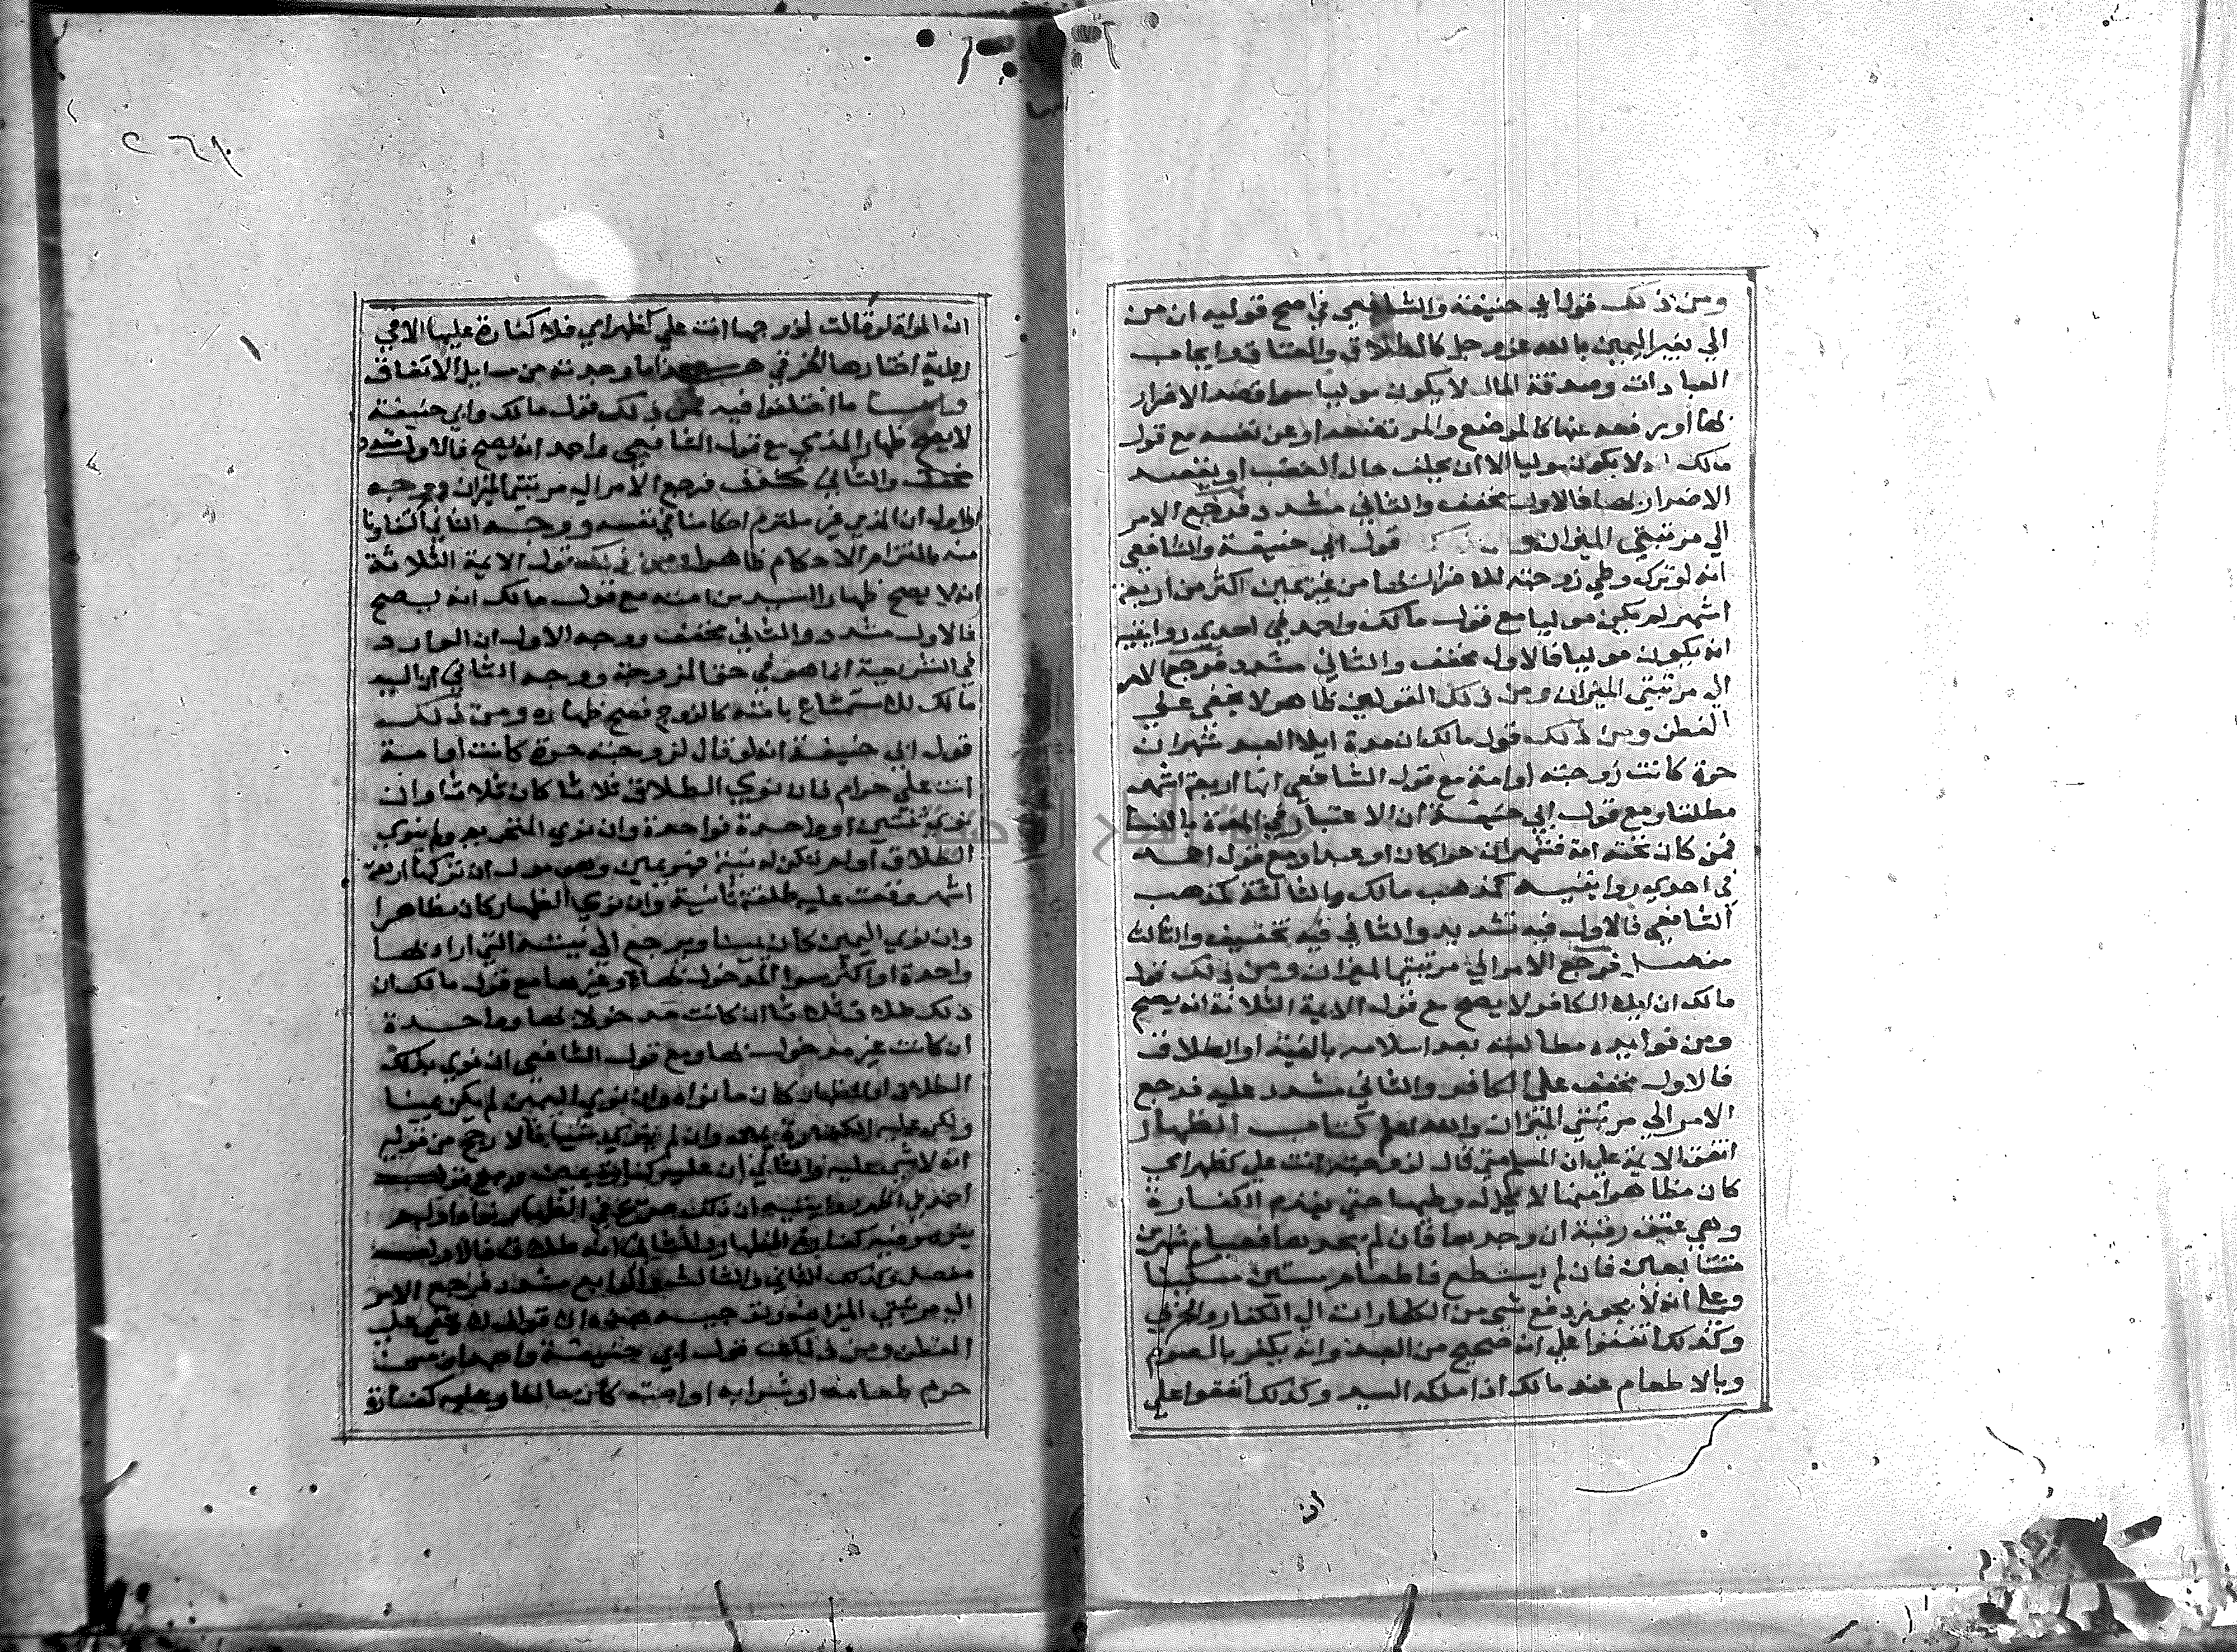 ومن ذلك قول ابي حنيفة والشافعي في اصح قوليه ان من
الي بغير اليمين بالله عز وجل كالطلاق والعتاق وايجاب
العبادات وصدقة المال لا يكون موليا سوا قصد الاضرار
بها او رفعه عنها كالمرضع والمريضة او عن نفسه مع قول
مالك لا يكون موليا الا ان يحلف حال الغضب او يقصد
الاضرار بها فالاول مخفف والثاني مشدد فرجع الامر
الي مرتبتي الميزان و قول ابي حنيفة والشافعي
انه لو ترك وطي زوجته للاضرار بها من غير يمين اكثر من اربعة
اشهر لم يكن موليا مع قول مالك واحمد في احدي روايتيه
انه يكون موليا فالاول مخفف والثاني مشدد فرجع الامر
الي مرتبتي الميزان ومن ذلك القولين ظاهر لا يخفي علي
الفطن ومن ذلك قول مالك ان مدة ايلا العبد شهران
حرة كانت زوجته او امة مع قول الشافعي انها اربعة اشهر
مطلقا ومع قول ابي حنيفة ان الاعتبار في المدة بالنسا
فمن كان تحته امة فشهران حرا كان او عبدا ومع قول احمد
في احدي روايتيه كمذهب مالك والثالثة كمذهب
الشافعي فالاول فيه تشديد والثاني فيه تخفيف والثالث
مفصل فرجع الامر الي مرتبتي الميزان ومن ذلك قول
مالك ان ايلا الكافر لا يصح مع قول الايمة الثلاثة انه يصح
ومن فوايده مطالبته بعد اسلامه بالفيئة او الطلاق
فالاول مخفف علي الكافر والثاني مشدد عليه فرجع
الامر الي مرتبتي الميزان والله اعلم كتاب الظهار
اتفق الايمة علي ان المسلم متي قال لزوجته انت علي كظهر امي
كان مظاهرا منها لا يحل له وطيها حتي يقدم الكفارة
وهي عتق رقبة ان وجدها فان لم يجدها فصيام شهرين
متتابعين فان لم يستطع فاطعام ستين مسكينا
وعلي انه لا يجوز دفع شي من الكفارات الي الكفار والحربي
وكذلك اتفقوا علي انه صحيح من العبد وانه يكفر بالصوم
وبالاطعام عند مالك اذا ملكه السيد وكذلك اتفقوا علي
ان
٢٦٩
ان المراة لو قالت لزوجها انت علي كظهر امي فلا كفارة عليها الا في
رواية اختارها الخرقي هذا ما وجدته من مسايل الاتفاق
واما ما اختلفوا فيه فمن ذلك قول مالك وابي حنيفة
لا يصح ظهار الذمي مع قول الشافعي واحمد انه يصح فالاول
مخفف والثاني مخفف فرجع الامر الي مرتبتي الميزان ووجه
الاول ان الذمي غير ملتزم احكامنا في نفسه ووجه الثاني اكتفاونا
منه بالتزام الاحكام ظاهرا ومن ذلك قول الايمة الثلاثة
انه لا يصح ظهار السيد من امته مع قول مالك انه يصح
فالاول مشدد والثاني مخفف ووجه الاول ان الوارد
في الشريعة انما هو في حق الزوجة ووجه الثاني ان السيد
مالك للاستمتاع بامته كالزوج فصح ظهاره ومن ذلك
قول ابي حنيفة انه لو قال لزوجته حرة كانت او امة
انت علي حرام فان نوي الطلاق ثلاثا كان ثلاثا وان
نوي ثنتين او واحدة فواحدة وان نوي التحريم ولم ينوي
الطلاق او لم تكن له نية فهو يمين وهو مول ان تركها اربعة
اشهر وقعت عليه طلقة ثانية وان نوي الظهار كان مظاهرا
وان نوي اليمين كان يمينا ويرجع الي نيته التي ارادها
واحدة او اكثر سوا المدخول بها وغيرها مع قول مالك ان
ذلك طلاق ثلاث ان كانت مدخولا بها وواحدة
ان كانت غير مدخول بها ومع قول الشافعي ان نوي بذلك
الطلاق او الظهار كان ما نواه وان نوي اليمين لم يكن يمينا
ولكن عليه الكفارة يمين وان لم ينوي شيا فالارجح من قوليه
انه لا شي عليه والثاني ان عليه كفارة يمين ومع قول
احمد في اظهر روايتيه ان ذلك صريح في الظهار نواه او لم
ينوه وفيه كفارة الظهار والثاني انه طلاق فالاول
مفصل وكذلك الثاني والثالث والرابع مشدد فرجع الامر
الي مرتبتي الميزان وتوجيه هذه الاقوال لا يخفي علي
الفطن ومن ذلك قول ابي حنيفة واحمد ان من
حرم طعامه او شرابه او امته كان حالفا وعليه كفارة